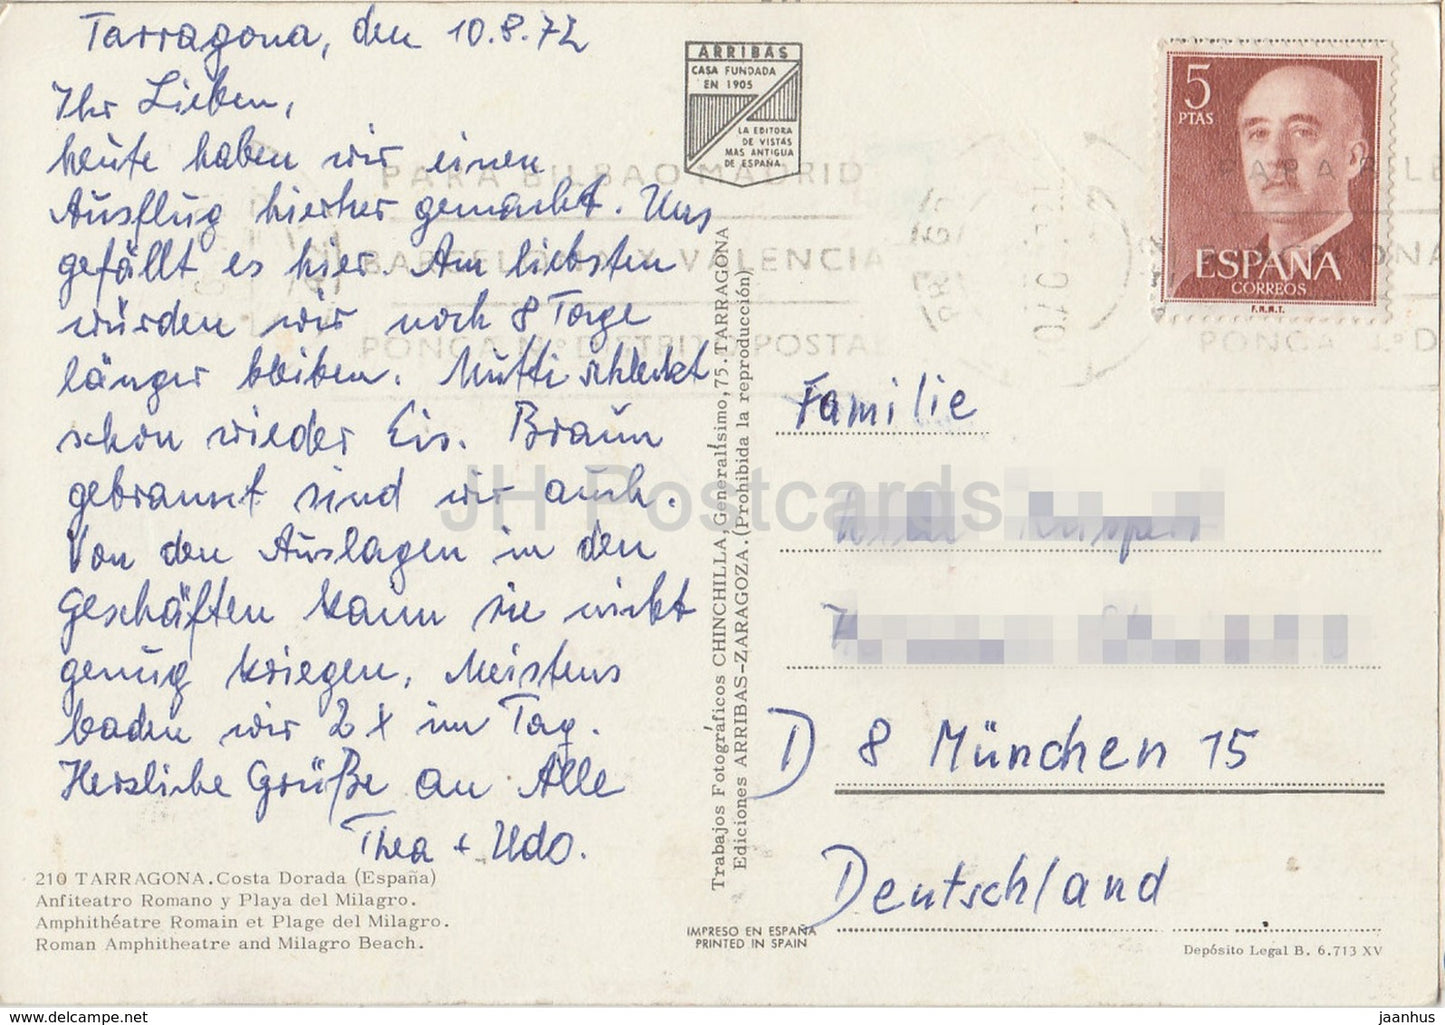 Tarragona, den 10.8.72
Ihr Lieben,
heute haben wir einen
Ausflug hierher gemacht. Uns
gefällt es hier. Am liebsten
würden wir noch 8 Tage
länger bleiben. Mutti schleckt
schon wieder Eis. Braun
gebrannt sind wir auch.
Von den Auslagen in den
Geschäften kann sie nicht
genug kriegen. Meistens
baden wir 2 x im Tag.
Herzliche Grüße an Alle
Thea + Udo.
210 TARRAGONA. Costa Dorada (España)
Anfiteatro Romano y Playa del Milagro.
Amphithéatre Romain et Plage del Milagro.
Roman Amphitheatre and Milagro Beach.
ARRIBAS
CASA FUNDADA
EN 1905
LA EDITORA
DE VISTAS
MAS ANTIGUA
DE ESPAÑA
PARA BILBAO MADRID
BARCELONA Y VALENCIA
PONGA Nº DISTRITO POSTAL
Trabajos Fotográficos CHINCHILLA, Generalísimo, 75. TARRAGONA
Ediciones ARRIBAS-ZARAGOZA. (Prohibida la reproducción)
IMPRESO EN ESPAÑA
PRINTED IN SPAIN
5
PTAS
ESPAÑA
CORREOS
F.N.M.T.
Familie
D 8 München 15
Deutschland
Depósito Legal B. 6.713 XV
JH Postcards
hippostcard.com
jaanhus